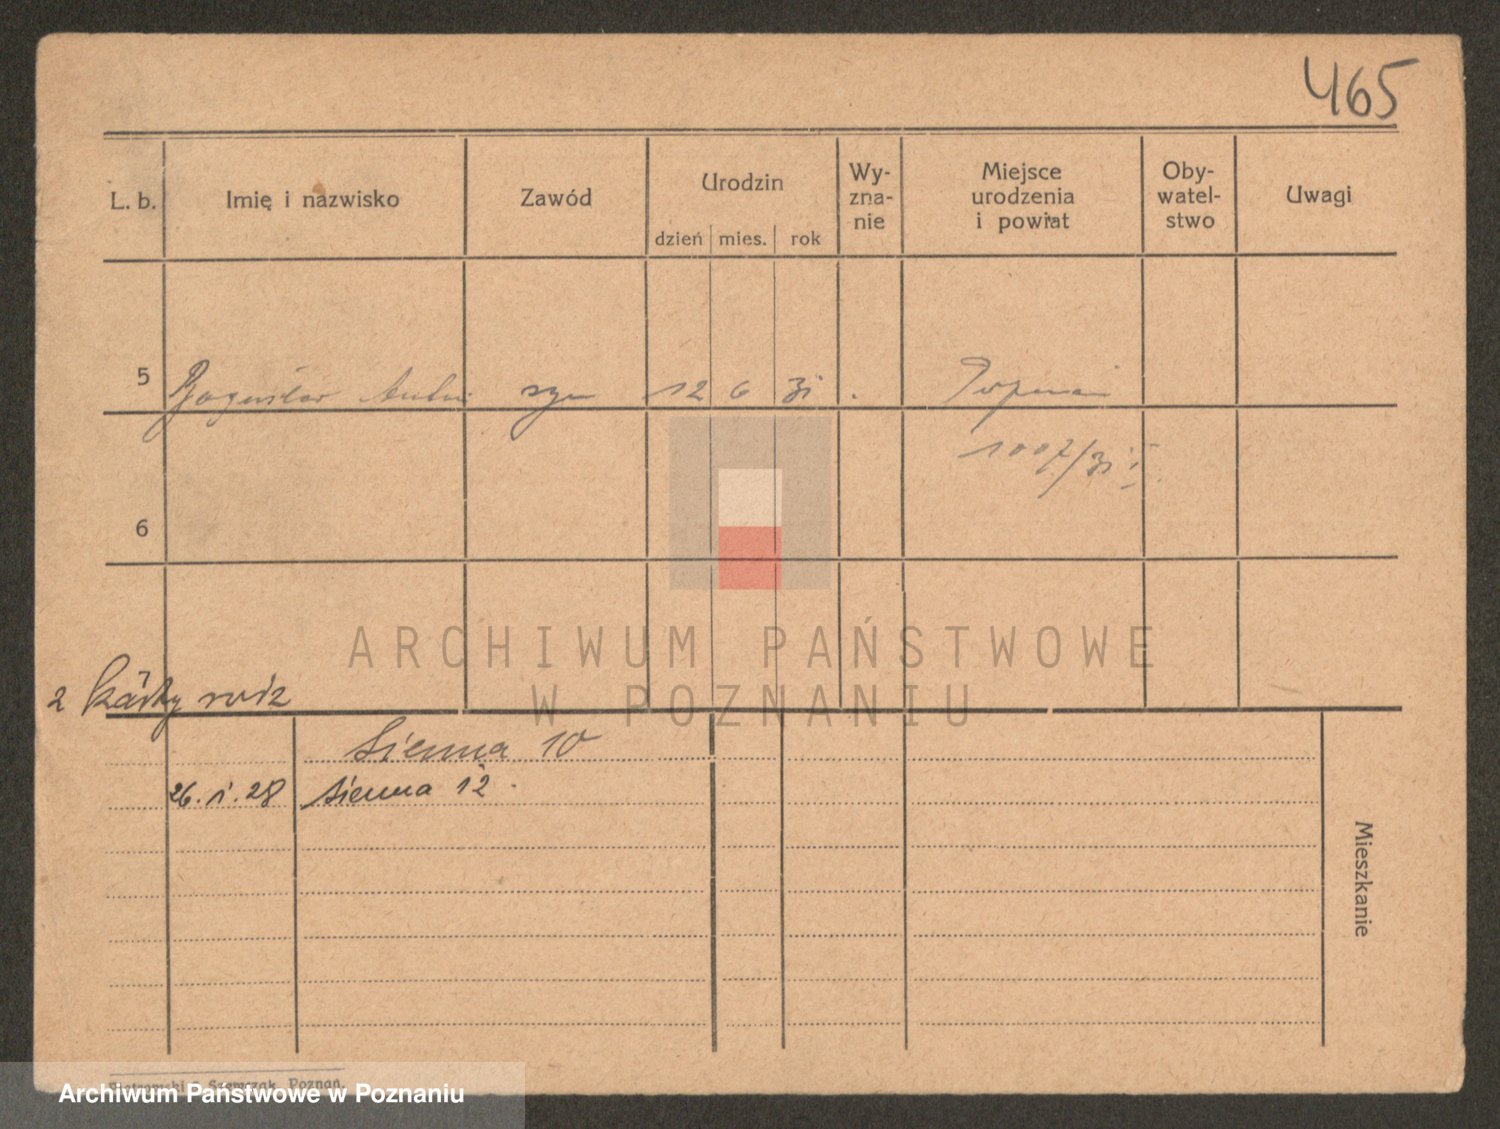 465
L. b.
Imię i nazwisko
Zawód
Urodzin
dzień mies. rok
Wy-
zna-
nie
Miejsce
urodzenia
i powiat
Oby-
watel-
stwo
Uwagi
5 Bogusław Antoni syn 12 6 31
1007/31
6
ARCHIWUM PAŃSTWOWE
W POZNANIU
2 karty rodz
Sienna 10
26. 1. 28 Sienna 12
Mieszkanie
Poznań.
Archiwum Państwowe w Poznaniu